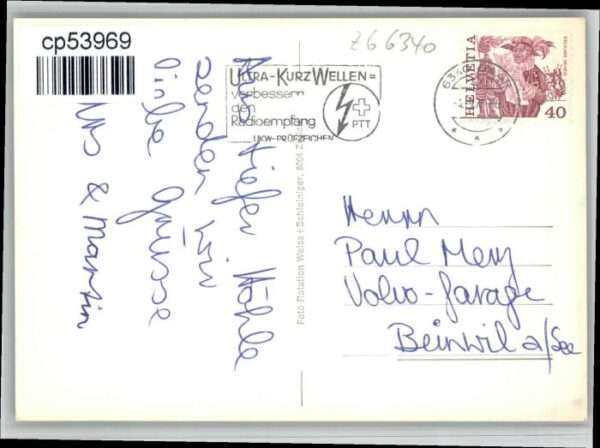 cp53969
Z66340
ULTRA-KURZWELLEN=
verbessern
den
Radioempfang
UKW-PRÜFZEICHEN
PTT
6340
HELVETIA
40
Aus tiefer Höhle
senden wir
liebe Grüsse
& Martin
Foto Rotation Weiss + Schleiniger, 8004
Herrn
Paul Merz
Volvo-Garage
Beinwil a/See